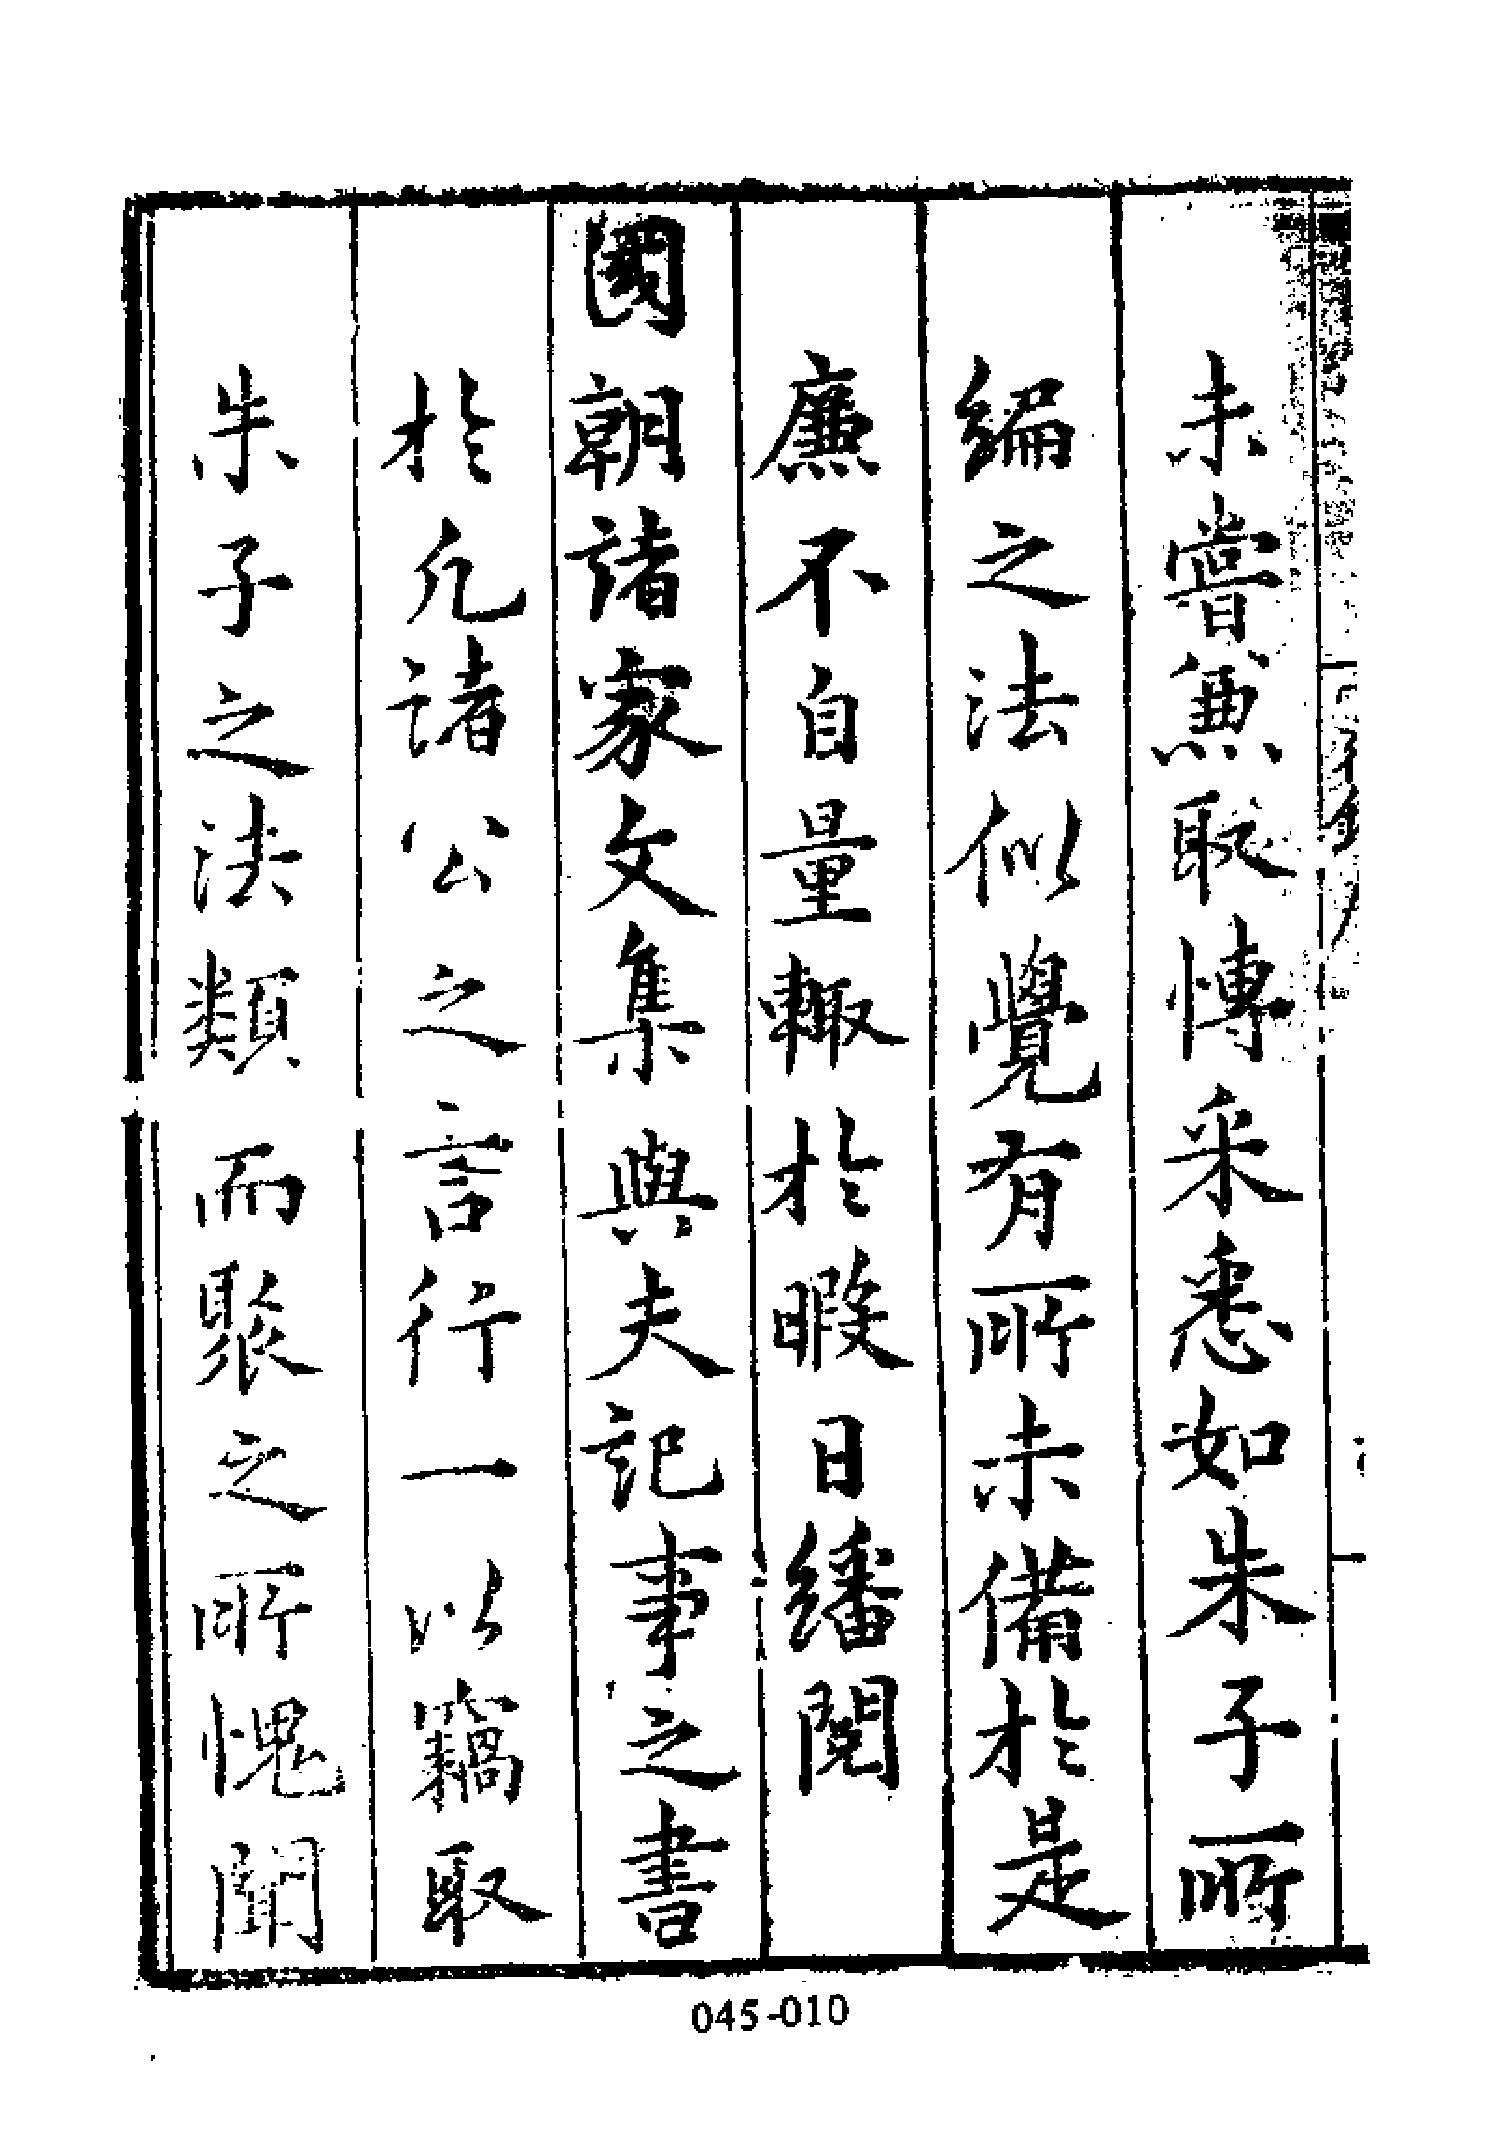 未嘗兼取慱采悉如朱子所
編之法似覺有所未備於是
廉不自量輙於暇日繙閱
國朝諸家文集與夫記事之書
於凡諸公之言行一以竊取
朱子之法類而聚之所愧聞
045-010